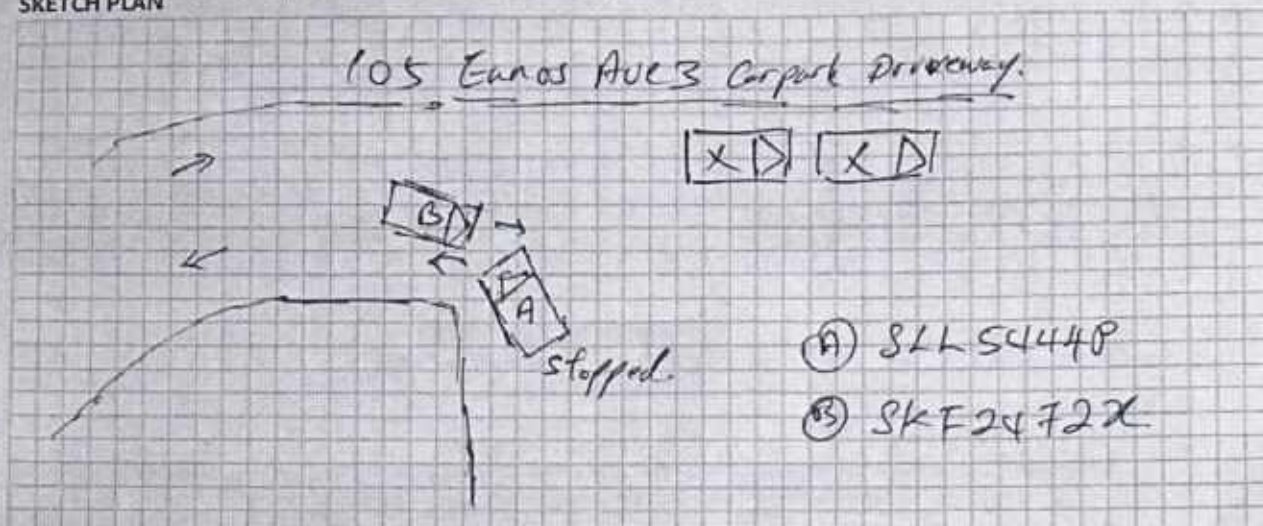 SKETCH PLAN
105 Eunos Ave 3 Carpark Driveway.
X X
B
A
stopped.
A SLL5444P
B SKF2472X